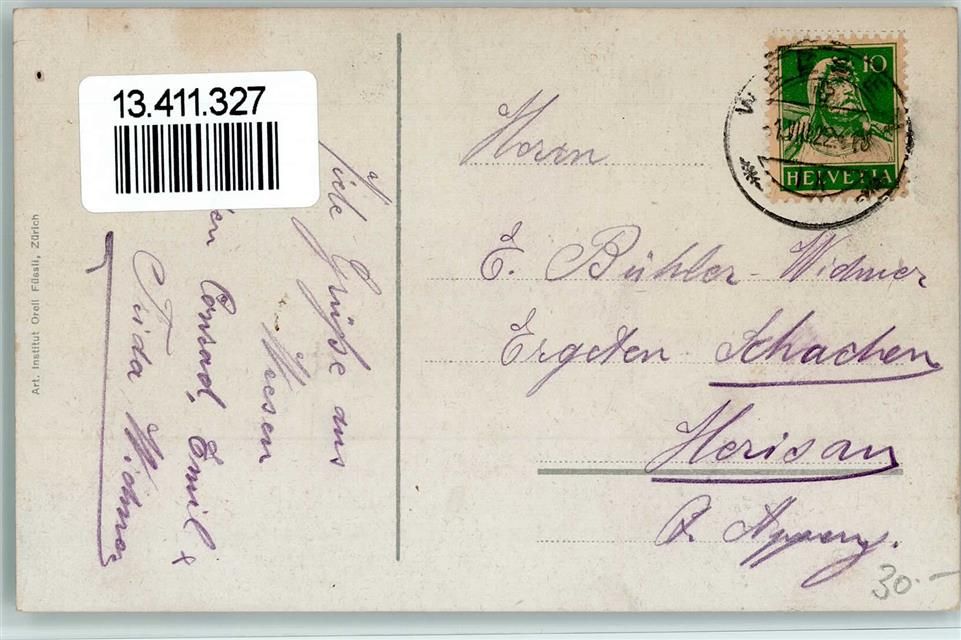 13.411.327
10
HELVETIA
Viele Grüsse aus
Wiesen
Conrad, Emil x
Frida Widmer
Herrn
E. Bühler-Widmer
Ergeten - Schachen
Herisau
Ct. Appenz.
30.-
Art. Institut Orell Füssli, Zürich